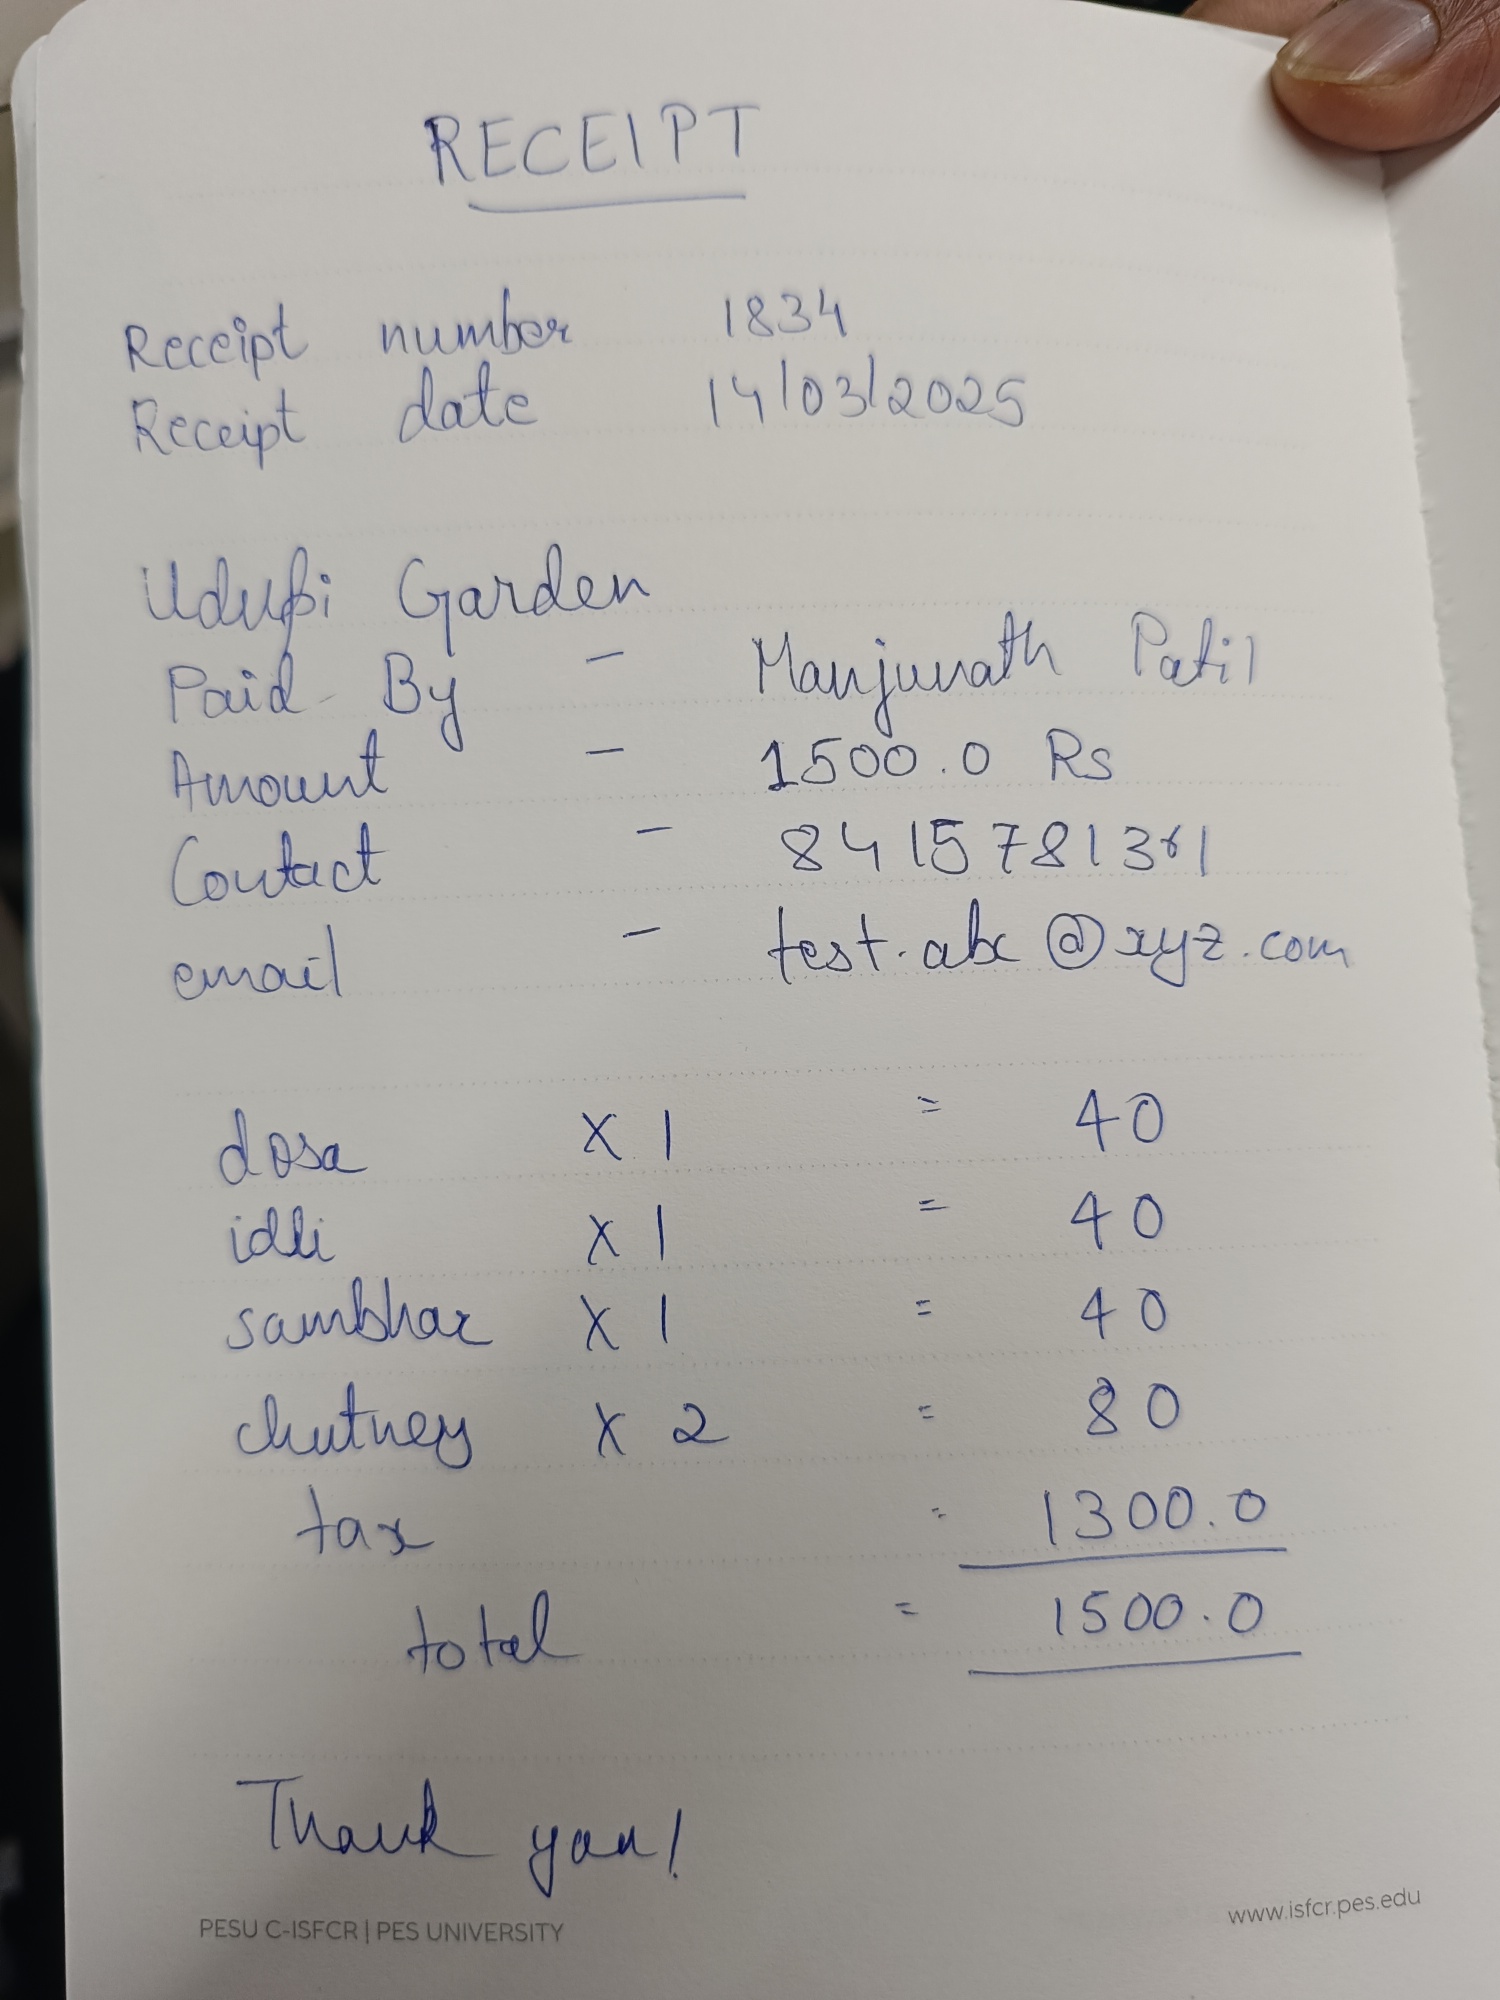 RECEIPT
Receipt number 1834
Receipt date 14/03/2025
Udupi Garden
Paid By - Manjunath Patil
Amount - 1500.0 Rs
Contact - 8415781361
email - test.abc@xyz.com
dosa X 1 = 40
idli X 1 = 40
sambhar X 1 = 40
chutney X 2 = 80
tax = 1300.0
total = 1500.0
Thank you!
PESU C-ISFCR | PES UNIVERSITY www.isfcr.pes.edu